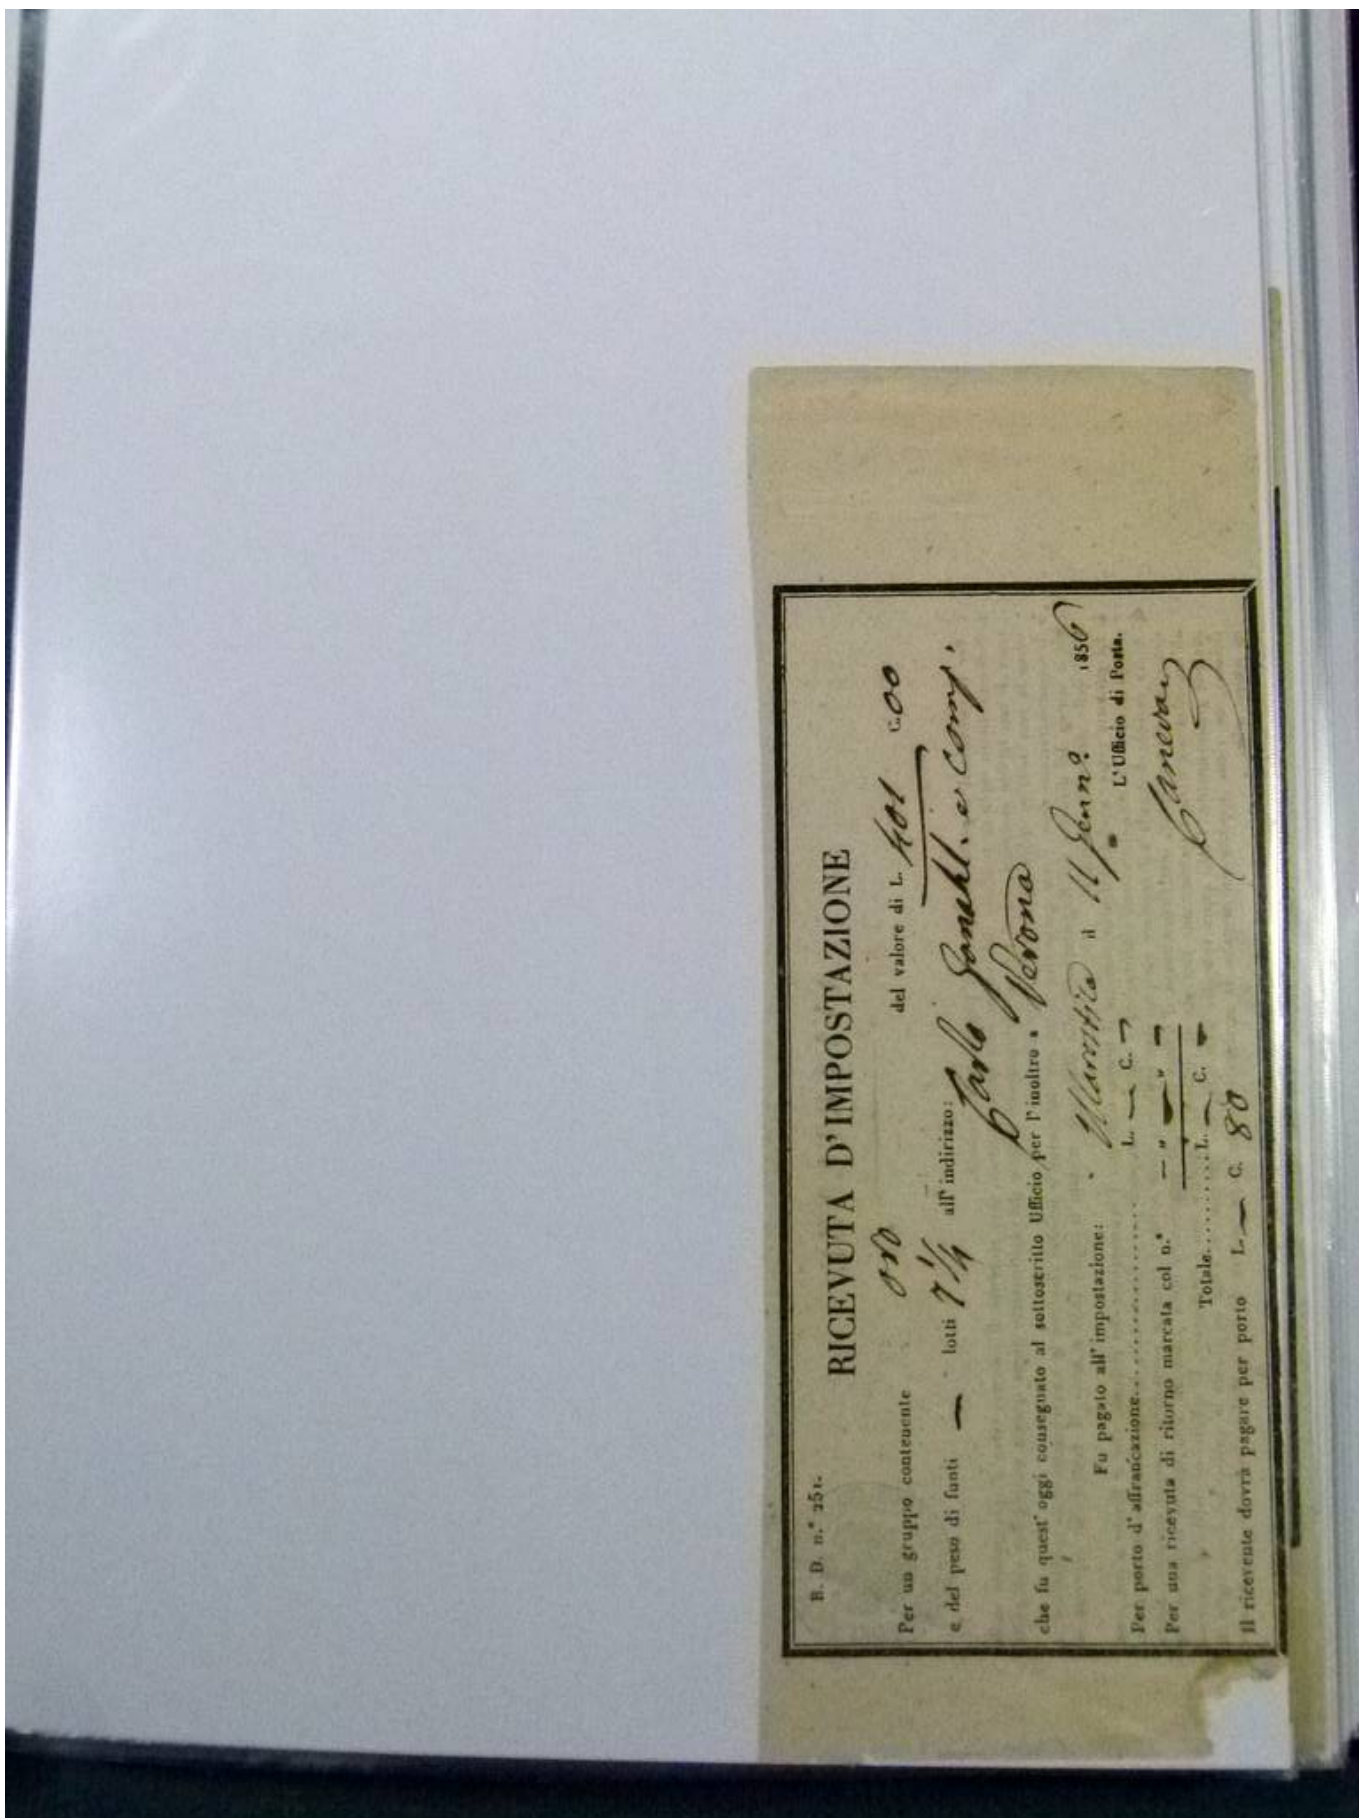 B. D. n.° 251.
RICEVUTA D'IMPOSTAZIONE
Per un gruppo contenente oro del valore di L. 401 C. 00
e del peso di funti — lotti 7 1/4 all'indirizzo:
Carlo e comp.
che fu quest'oggi consegnato al sottoscritto Ufficio per l'inoltro a Verona
il 11 Genn.° 1856
Fu pagato all'impostazione:
L'Ufficio di Posta.
Per porto d'affrancazione.............. L. — C. —
Per una ricevuta di ritorno marcata col n.° — " — " —
Totale.........L. — C. —
Il ricevente dovrà pagare per porto L. — C. 80